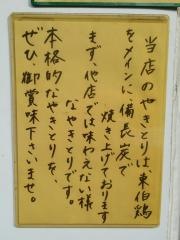 当店のやきとりは東伯鶏
をメインに、備長炭で
焼き上げております
まず、他店では味わえない様
なやきとりです。
本格的なやきとりを、
ぜひ、御賞味下さいませ。